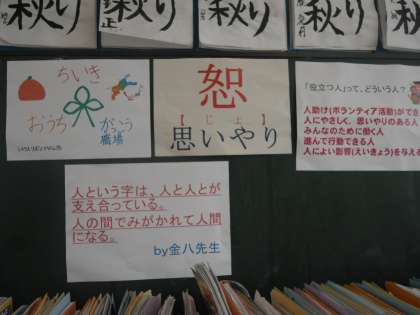 秋り
秋り
秋り
秋り
秋り
ちいき
おうち
がっこう
職場
恕
【じょ】
思いやり
「役立つ人」って、どういう人?
人助け(ボランティア活動)ができ
人にやさしく、思いやりのある人
みんなのために働く人
進んで行動できる人
人によい影響(えいきょう)を与える
人という字は、人と人とが
支え合っている。
人の間でみがかれて人間
になる。
by金八先生